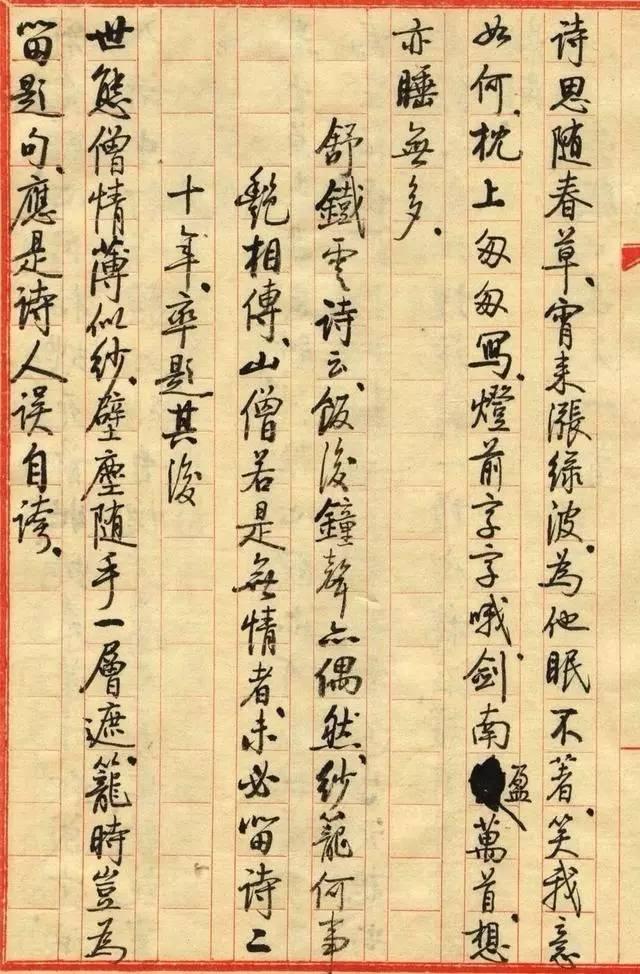 诗思随春草、宵来漲绿波、為他眠不著、笑我意
如何、枕上匆匆写、燈前字字哦、劍南盈萬首、想
亦睡無多、
舒鐵雲诗云、飯後鐘聲亦偶然、紗籠何事
艶相傳、山僧若是無情者、未必留诗二
十年、率題其後
世態僧情薄似紗、壁塵随手一層遮、籠時豈為
留題句、應是诗人误自誇、